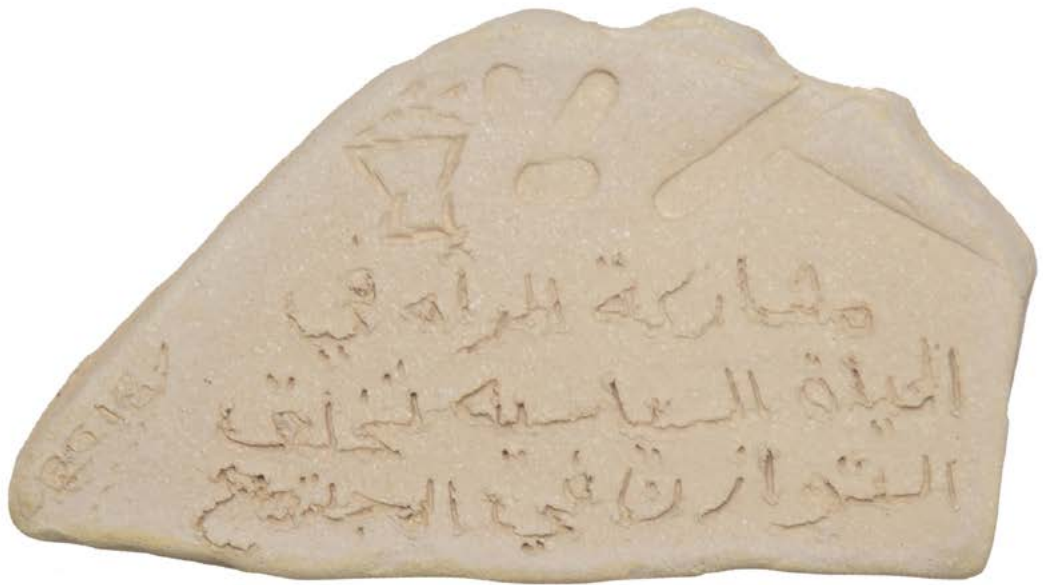 مشاركة المراه في
الحياة السياسيه تخلق
التوازن في المجتمع